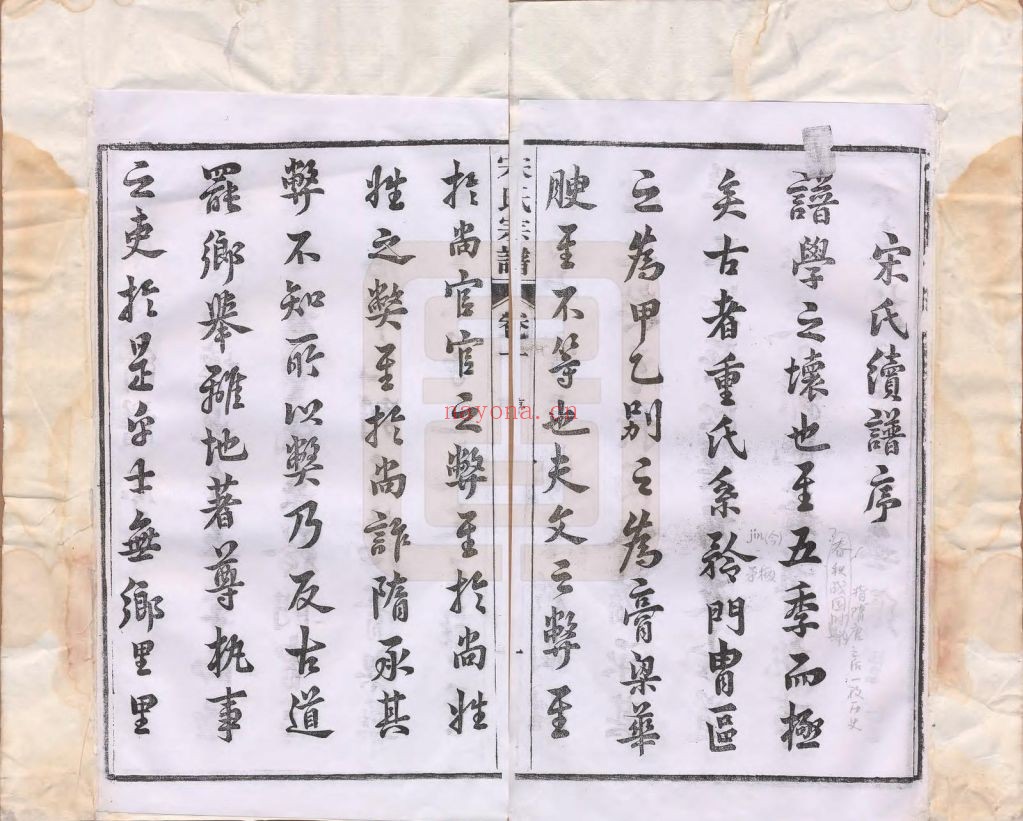 宋氏續譜序
譜學之壞也至五季而極
矣古者重氏系矜門胄區
之為甲乙別之為膏粱華
腴至不等也夫文之弊至
宋氏宗譜 卷一 一
於尚官官之弊至於尚姓
姓之弊至於尚詐隋承其
弊不知所以弊乃反古道
罷鄉舉離地著尊執事
之吏於是乎士無鄉里里
jin(今)
noyona.cn